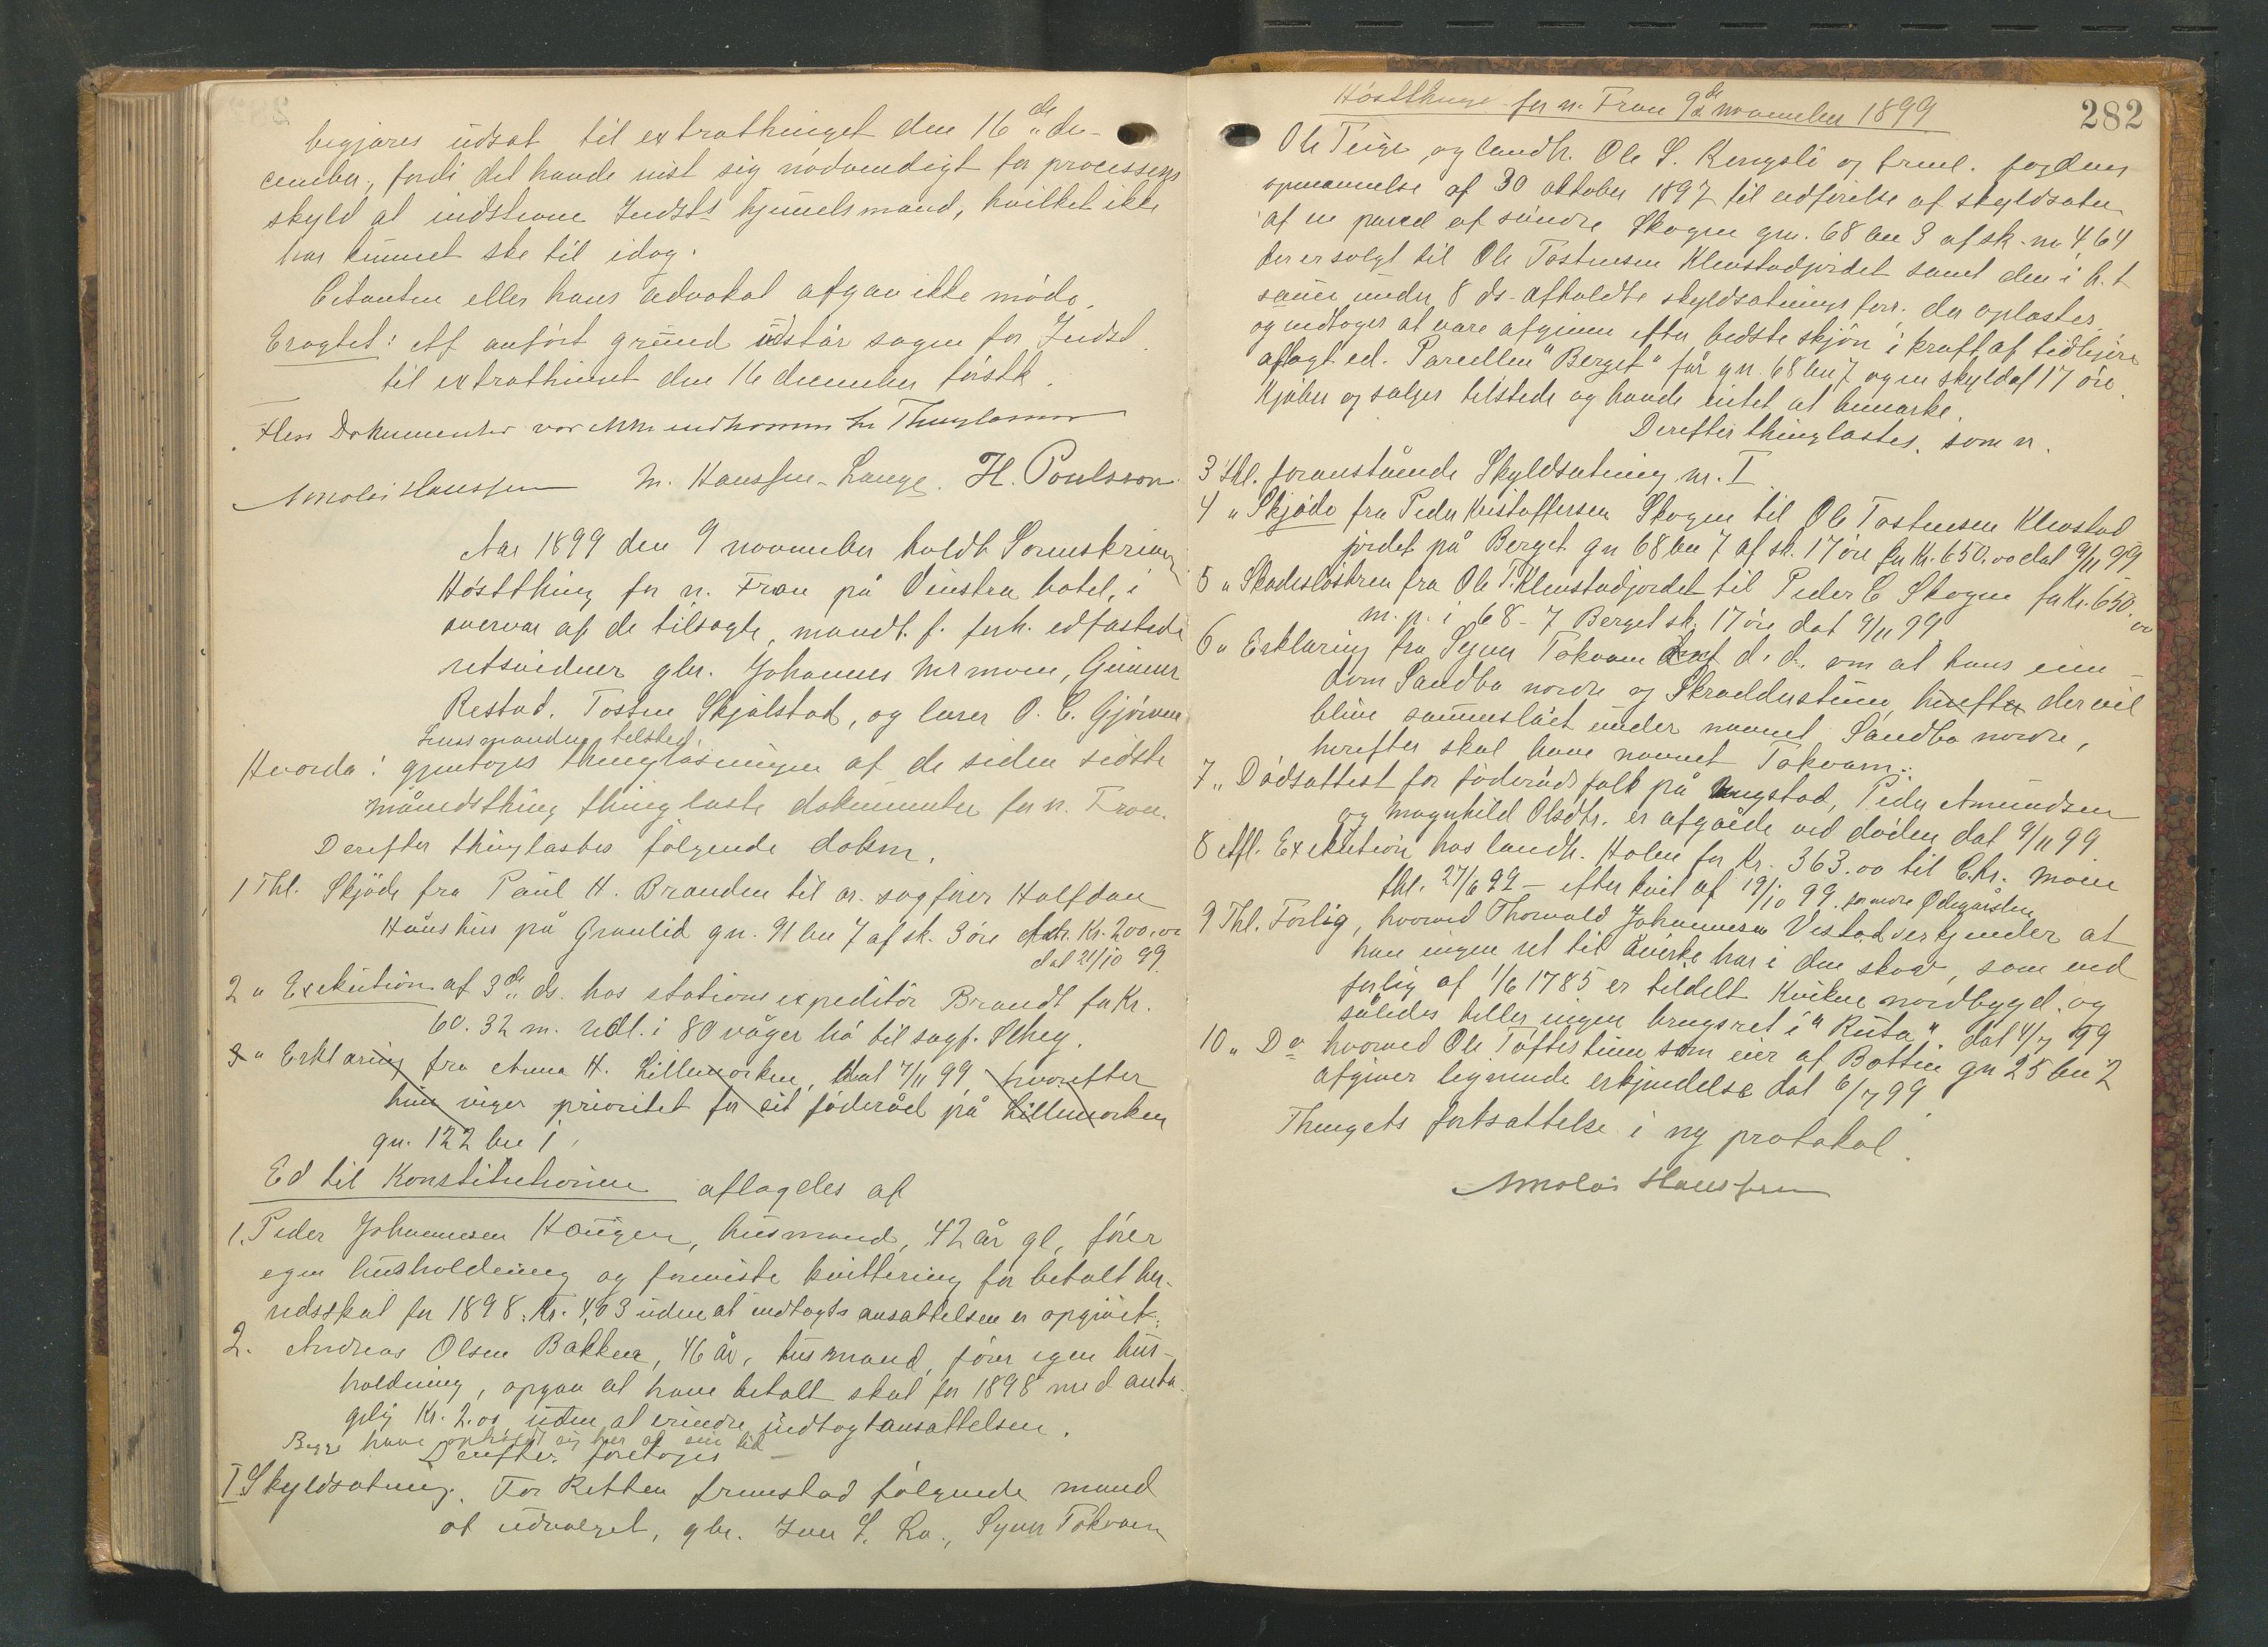 begjæres udsat til extrathinget den 16de de-
cember, fordi det havde vist sig nödvendigt for processens
skyld at indstevne Indst's hjemmelsmand, hvilket ikke
har kunnet ske til idag.
Citanten eller hans advokat afgav ikke möde.
Eragtet: Af anfört grund udstår sagen for Indst
til extrathinget den 16 december förstk.
Flere Dokumenter var ikke indkomne til Thinglæsning
Nicolai Hanssen M. Hanssen-Lange. H. Poulsson.
Aar 1899 den 9 november holdt Sorenskriver
Hösthing for n. Fron på Vinstra hotel, i
overvær af de tilsagte, mandt. f. forh. edfæstede
retsvidner gbr. Johannes Mr moen, Gunner
Restad, Tosten Skjålstad, og lærer O. C. Gjörven
Lensmanden tilsted.
Hvorda: gjentoges thinglæsningen af de siden sidste
månedsthing thinglæste dokumenter for n. Fron.
Derefter thinglæstes følgende dokm.
1 Thl. Skjöde fra Paul H. Branden til or. sagförer Halfdan
Haushus på Granlid gn. 91 bn 7 af sk. 3 öre Kr. 200.00
dat 21/10 99.
2 " Exekution af 3de ds. hos stationsexpeditör Brandt for Kr.
60.32 m. udl. i 80 våger hö til sagf. Stheg.
3 " Erklæring fra Anna H. Lillemorken, dat 7/11 99, hvorefter
hun viger prioritet for sit föderåd på Lillemorken
gn. 122 bn 1,
Ed til Konstitutionen aflagdes af
1. Peder Johannesen Haugen, husmand, 42 år gl, förer
egen husholdning og foreviste kvittering for betalt her-
redsskat for 1898. Kr. 4,03 uden at indtægtsansættelsen er opgivet.
2. Andreas Olsen Bakken, 46 år, husmand, förer egen hus-
holdning, opgav at have betalt skat for 1898 med anta-
gelig Kr. 2.00 uden at erindre indtægtansættelsen.
Begge have opholdt sig her al sin tid
Derefter foretoges
I Skyldsætning. For Retten fremstod följende mænd
af udvalget, gbr. Iver S. Lo, Syver Tokvam
282
Höstthinge for n. Fron 9de november 1899
Ole Teige og landh. Ole S. Kongsli og freml. fogdens
opnævnelse af 30 oktober 1897 til udförelse af skyldsætn
af en parcel af söndre Skogen gn. 68 bn 3 af sk. m 4 64
der er solgt til Ole Tostensen Klevstadjordet samt den i h. t
samme under 8 ds. afholdte skyldsætnings forr. der oplæstes
og vedtoges at være afgiven efter bedste skjön i kraft af tidligere
aflagt ed. Parcellen "Berget" får gn. 68 bn 7 og en skyld af 17 öre.
Kjöber og sælger tilstede og havde intet at bemærke.
Derefter thinglæstes, som n.
3 Thl. foranstående Skyldsætning nr. I
4 " Skjöde fra Peder Kristoffersen Skogen til Ole Tostensen Klevstad
jordet på Berget gn 68 bn 7 af sk. 17 öre for Kr. 650.00 dat 9/11 99
5 " Skadeslösbrev fra Ole T. Klevstadjordet til Peder C Skogen for Kr. 650.00
m. p. i 68-7 Berget sk. 17 öre dat 9/11 99
6 " Erklæring fra Syver Tokvam dat d. d. om at hans eien-
dom Sandbu nordre og Skræddustuen, herefter der vil
blive sammenslået under navnet Sandbu nordre,
herefter skal have navnet Tokvam.
7 " Dödsattest for föderådsfolk på Ungstad, Peder Amundsen
og Magnhild Olsdtr. er afgåede ved döden dat 9/11 99
8 Afl. Exekution hos landh. Holen for Kr. 363.00 til C. Hr. moen
thl. 27/6 99 – efter kvit af 19/10 99. Ødegården
9 Thl. Forlig, hvorved Thorvald Johannesen Vistad erkjender at
han ingen ret til åvirke har i den skov, som ved
forlig af 1/6 1785 er tildelt Kvikne nordbygd. og
således heller ingen brugsret i "Ruta" dat 4/7 99
10 " Do hvorved Ole Toftestuen som eier af Botten gn 25 bn 2
afgiver lignende erkjendelse dat 6/7 99.
Thingets fortsættelse i ny protokol.
Nicolai Hanssen